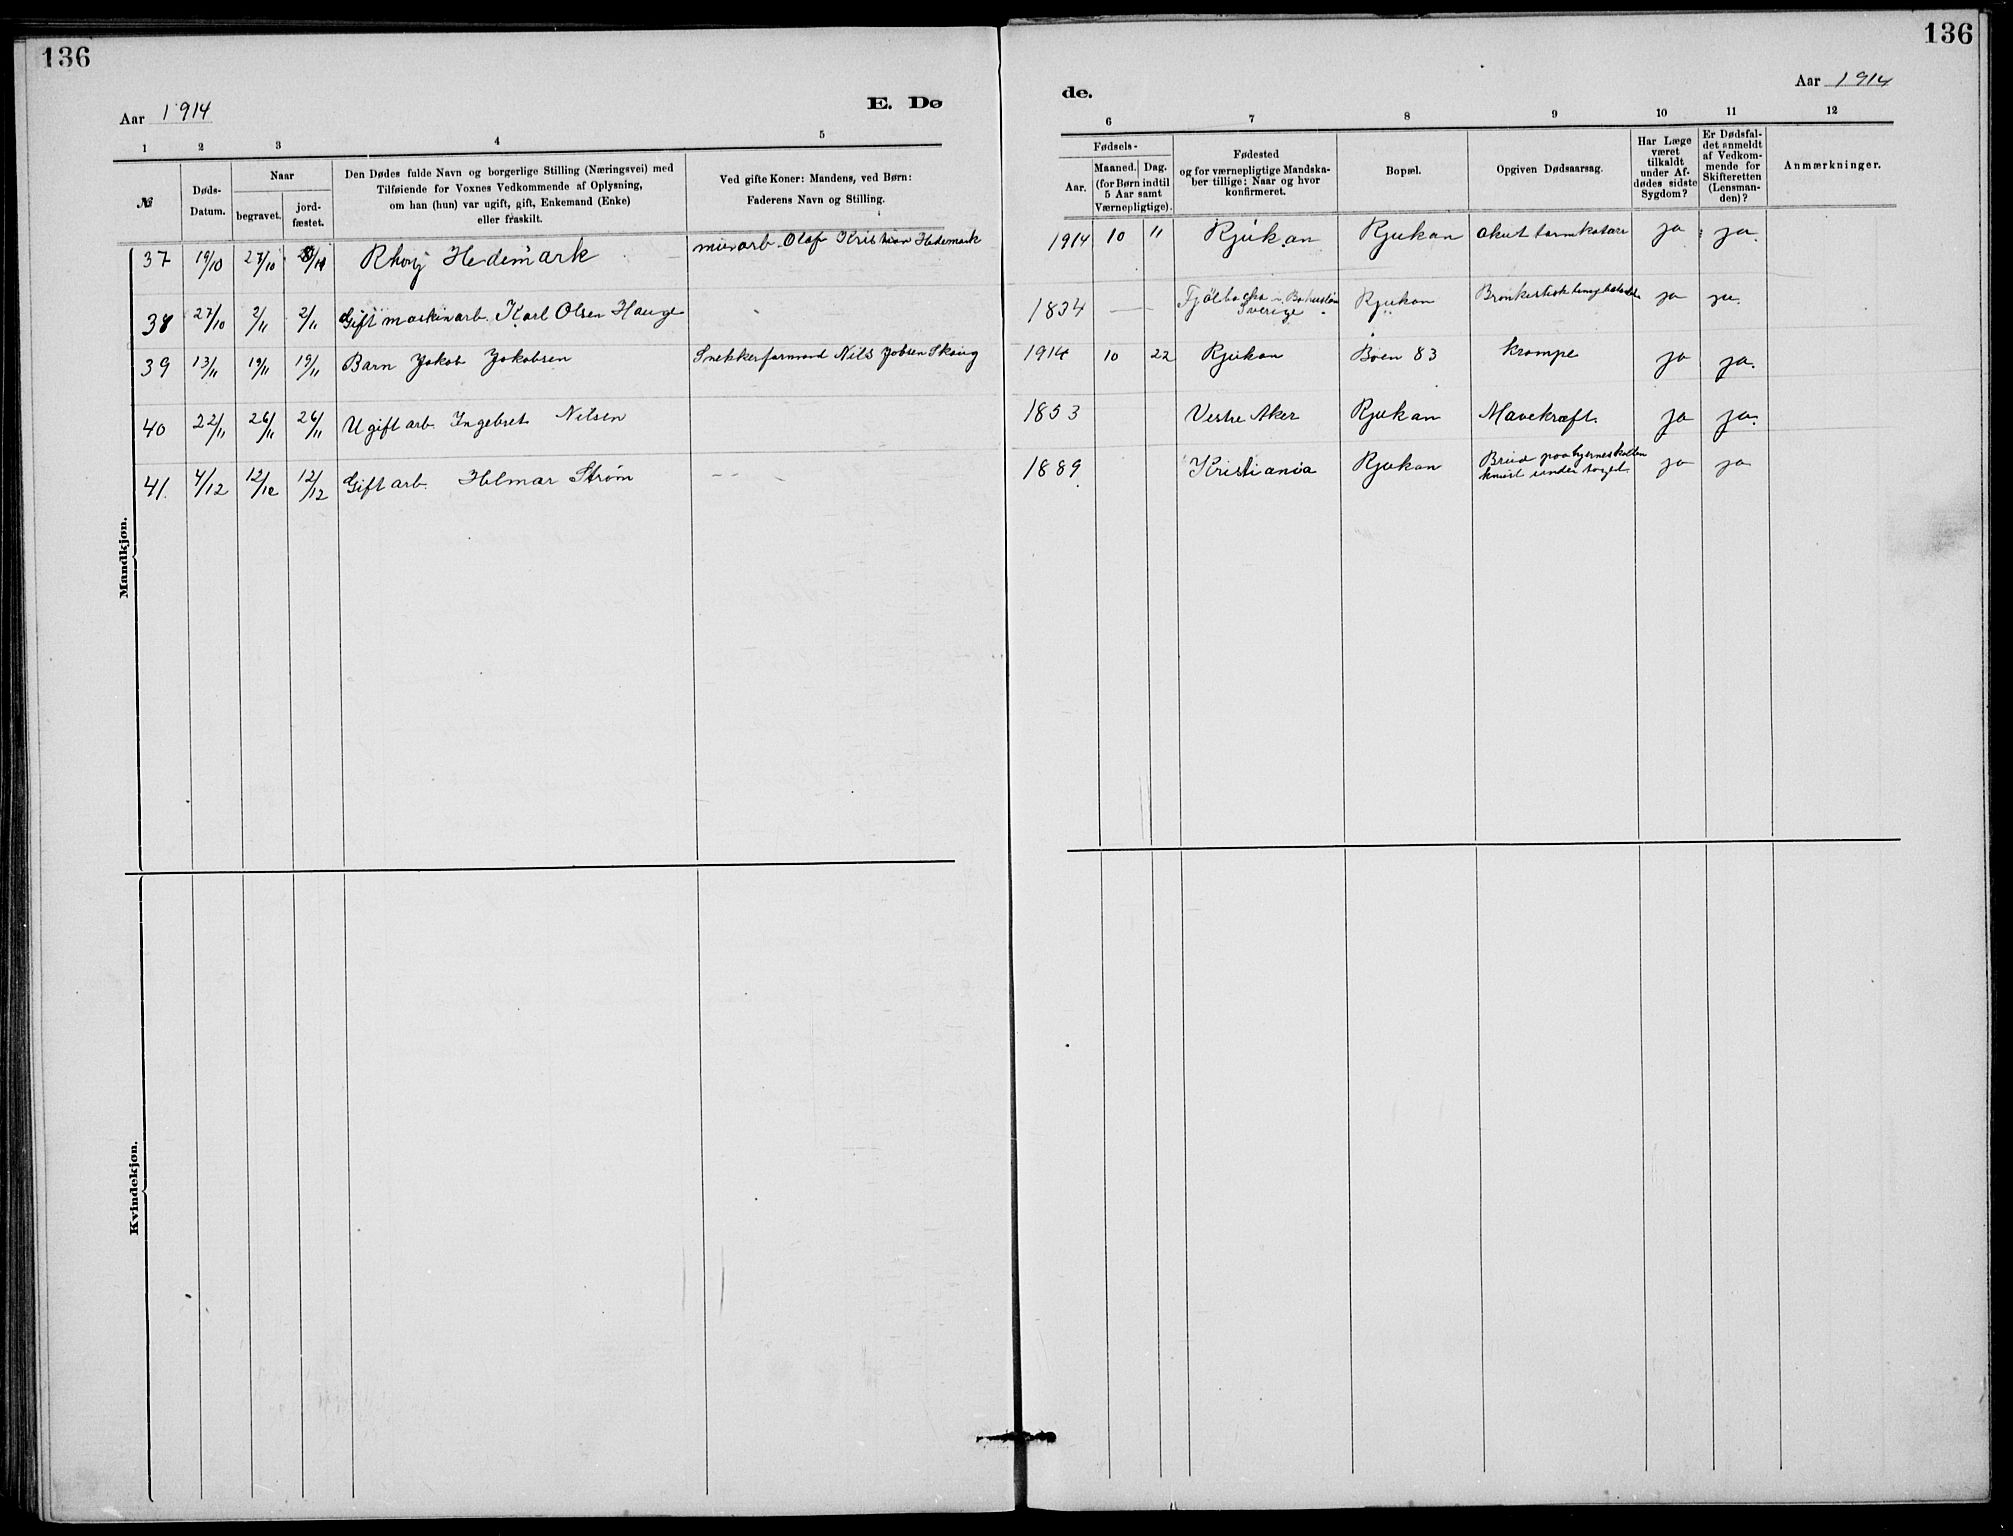 136
136
Aar 1914
E. Dø
de.
Aar 1914
1 2 3 4 5
6 7 8 9 10 11 12
№
Døds-
Datum.
Naar
begravet.
jord-
fæstet.
Den Dødes fulde Navn og borgerlige Stilling (Næringsvei) med
Tilføiende for Voxnes Vedkommende af Oplysning,
om han (hun) var ugift, gift, Enkemand (Enke)
eller fraskilt.
Ved gifte Koner: Mandens, ved Børn:
Faderens Navn og Stilling.
Fødsels-
Aar.
Maaned. Dag.
(for Børn indtil
5 Aar samt
Værnepligtige).
Fødested
og for værnepligtige Mandska-
ber tillige: Naar og hvor
konfirmeret.
Bopæl.
Opgiven Dødsaarsag.
Har Læge
været
tilkaldt
under Af-
dødes sidste
Sygdom?
Er Dødsfal-
det anmeldt
af Vedkom-
mende for
Skifteretten
(Lensman-
den)?
Anmærkninger.
Mandkjøn.
37 19/10 27/10 Hedemark murarb. Olaf Kristian Hedemark 1914 10 11 Rjukan Rjukan akut tarmkatarr ja ja.
38 27/10 2/11 2/11 Gift maskinarb. Karl Olsen Hauge 1834 — Fjölbacka i Bohuslän
Sverige Rjukan ja ja.
39 13/11 19/11 19/11 Barn Jakob Jakobsen Snekkerformand Nils Jobsen Skoug 1914 10 22 Rjukan Bøen 83 krampe ja ja.
40 22/11 26/11 26/11 Ugift arb. Ingebret Nilsen 1853 Vestre Aker Rjukan Mavekræft. ja ja.
41. 4/12 12/12 12/12 Gift arb. Hilmar Strøm 1889 Kristiania Rjukan Brud paa hjerneskallen
knust under toget ja ja
Kvindekjøn.